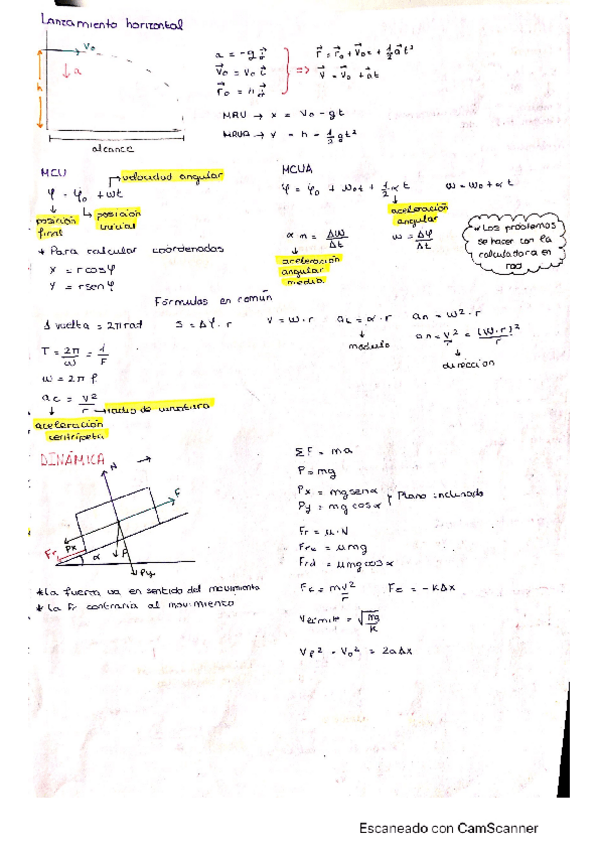 Lanzamiento horizontal
V₀
a
h
alcance
a = -g j
V₀ = V₀ i
r₀ = h j
=>
r = r₀ + V₀t + 1/2 at²
V = V₀ + at
MRU → x = V₀ - gt
MRUA → y = h - 1/2 gt²
MCU
velocidad angular
φ = φ₀ + ωt
posición final
posición inicial
* Para calcular coordenadas
x = r cos φ
y = r sen φ
MCUA
φ = φ₀ + ω₀t + 1/2 α t
ω = ω₀ + α t
aceleración angular
α m = Δω/Δt
ω = Δφ/Δt
aceleración angular media
* Los problemas se hacen con la calculadora en rad
Fórmulas en común
1 vuelta = 2π rad
S = Δφ · r
V = ω · r
at = α · r
an = ω² · r
modulo
an = v²/r = (ω·r)²/r
direccion
T = 2π/ω = 1/F
ω = 2π f
ac = v²/r
aceleración centrípeta
DINÁMICA
N
F
Px
Fr
α
P
Py
* La fuerza va en sentido del movimiento
* La Fr contraria al movimiento
ΣF = ma
P = mg
Px = mg sen α
Py = mg cos α
Plano inclinado
Fr = μ · N
= μmg
= μmg cos α
Fc = m v²/r
Fe = -KΔx
= √
Vf² - V₀² = 2aΔx
Escaneado con CamScanner